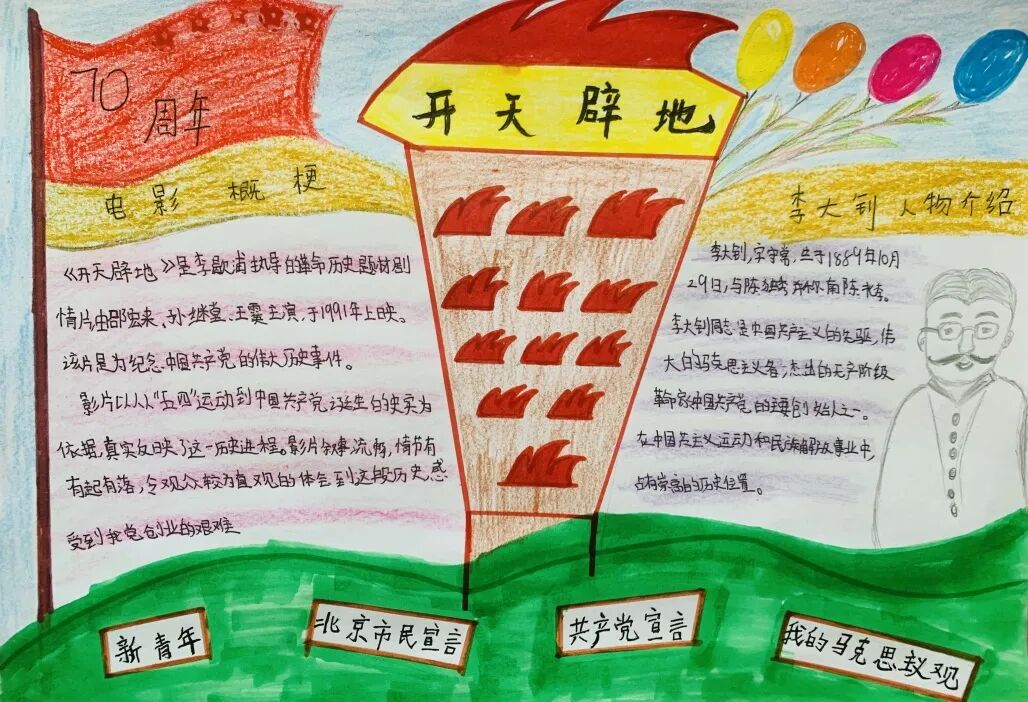 70
周年
开天辟地
电影概梗
《开天辟地》是李歇浦执导的革命历史题材剧
情片,由邵宏来、孙继堂、王霙主演,于1991年上映。
该片是为纪念中国共产党的伟大历史事件。
影片以从“五四”运动到中国共产党诞生的史实为
依据,真实反映了这一历史进程。影片叙事流畅,情节有
有起有落,令观众较为直观的体会到这段历史,感
受到我党创业的艰难
李大钊人物介绍
李大钊,字守常,生于1889年10月
29日,与陈独秀并称南陈北李。
李大钊同志是中国共产主义的先驱,伟
大的马克思主义者,杰出的无产阶级
革命家中国共产党的主要创始人之一。
在中国共主义运动和民族解放事业中,
占有崇高的历史位置。
新青年
北京市民宣言
共产党宣言
我的马克思议观